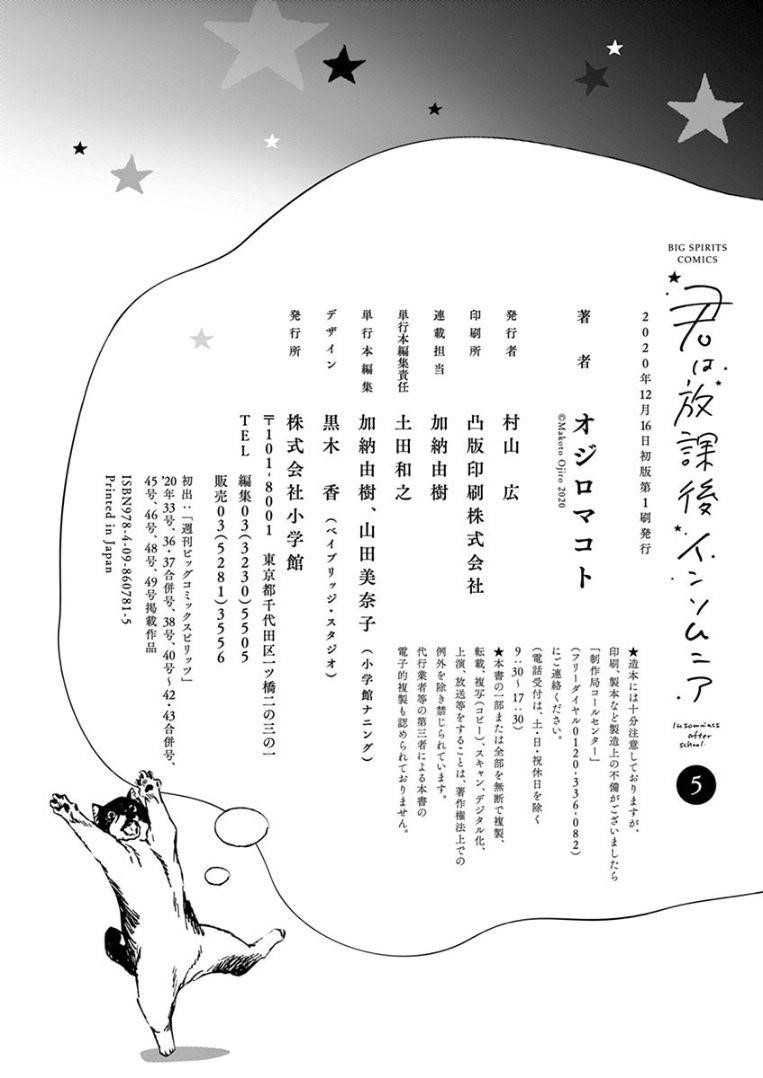 BIG SPIRITS
COMICS
君は放課後インソムニア
Insomniacs
after
school
5
2020年12月16日初版第1刷発行
著者 オジロマコト
©Makoto Ojiro 2020
発行者 村山 広
印刷所 凸版印刷株式会社
連載担当 加納由樹
単行本編集責任 土田和之
単行本編集 加納由樹、山田美奈子(小学館ナニング)
デザイン 黒木 香(ベイブリッジ・スタジオ)
発行所 株式会社小学館
〒101-8001 東京都千代田区一ツ橋二の三の一
TEL 編集03(3230)5505
販売03(5281)3556
初出:「週刊ビッグコミックスピリッツ」
'20年33号、36・37合併号、38号、40号〜42・43合併号、
45号、46号、48号、49号掲載作品
ISBN978-4-09-860781-5
Printed in Japan
★造本には十分注意しておりますが、
印刷、製本など製造上の不備がございましたら
「制作局コールセンター」
(フリーダイヤル0120-336-082)
にご連絡ください。
(電話受付は、土・日・祝休日を除く
9:30〜17:30)
★本書の一部または全部を無断で複製、
転載、複写(コピー)、スキャン、デジタル化、
上演、放送等をすることは、著作権法上での
例外を除き禁じられています。
代行業者等の第三者による本書の
電子的複製も認められておりません。